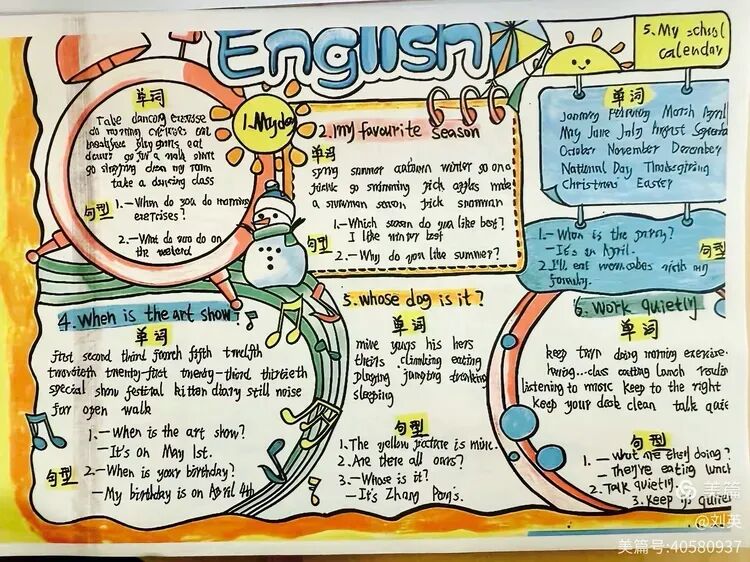 English
1. My day
单词
Take dancing exercise
do morning exercises eat
eat
go for a walk
go shopping clean my room
take a dancing class
句型
1.—When do you do morning
exercises?
2.—What do you do on
the weekend
2. my favourite season
单词
spring summer autumn winter go on a
picnic go swimming pick apples make
a snowman season pick snowman
句型
1.—Which season do you like best?
I like winter best
2.—Why do you like summer?
5. My school
calendar
单词
January February March April
May June July August
October November December
National Day Thanksgiving
Christmas Easter
句型
1.—When is the party?
—It's in April.
2. I'll eat with my
family.
4. When is the art show?
单词
first second third fourth fifth twelfth
twentieth twenty-first twenty-third thirtieth
special show festival kitten diary still noise
far open walk
句型
1.—When is the art show?
—It's on May 1st.
2.—When is your birthday?
—My birthday is on April 4th
5. whose dog is it?
单词
mine yours his hers
theirs climbing eating
playing jumping drinking
sleeping
句型
1. The yellow picture is mine.
2. Are these all ours?
3.—Whose is it?
—It's Zhang Peng's.
6. Work quietly
单词
keep turn doing morning exercise
having...class eating lunch
listening to music keep to the right
keep your desk clean talk
句型
1.—What are they doing?
—They're eating lunch
2. Talk quietly.
3. Keep
美篇
@刘英
美篇号:40580937